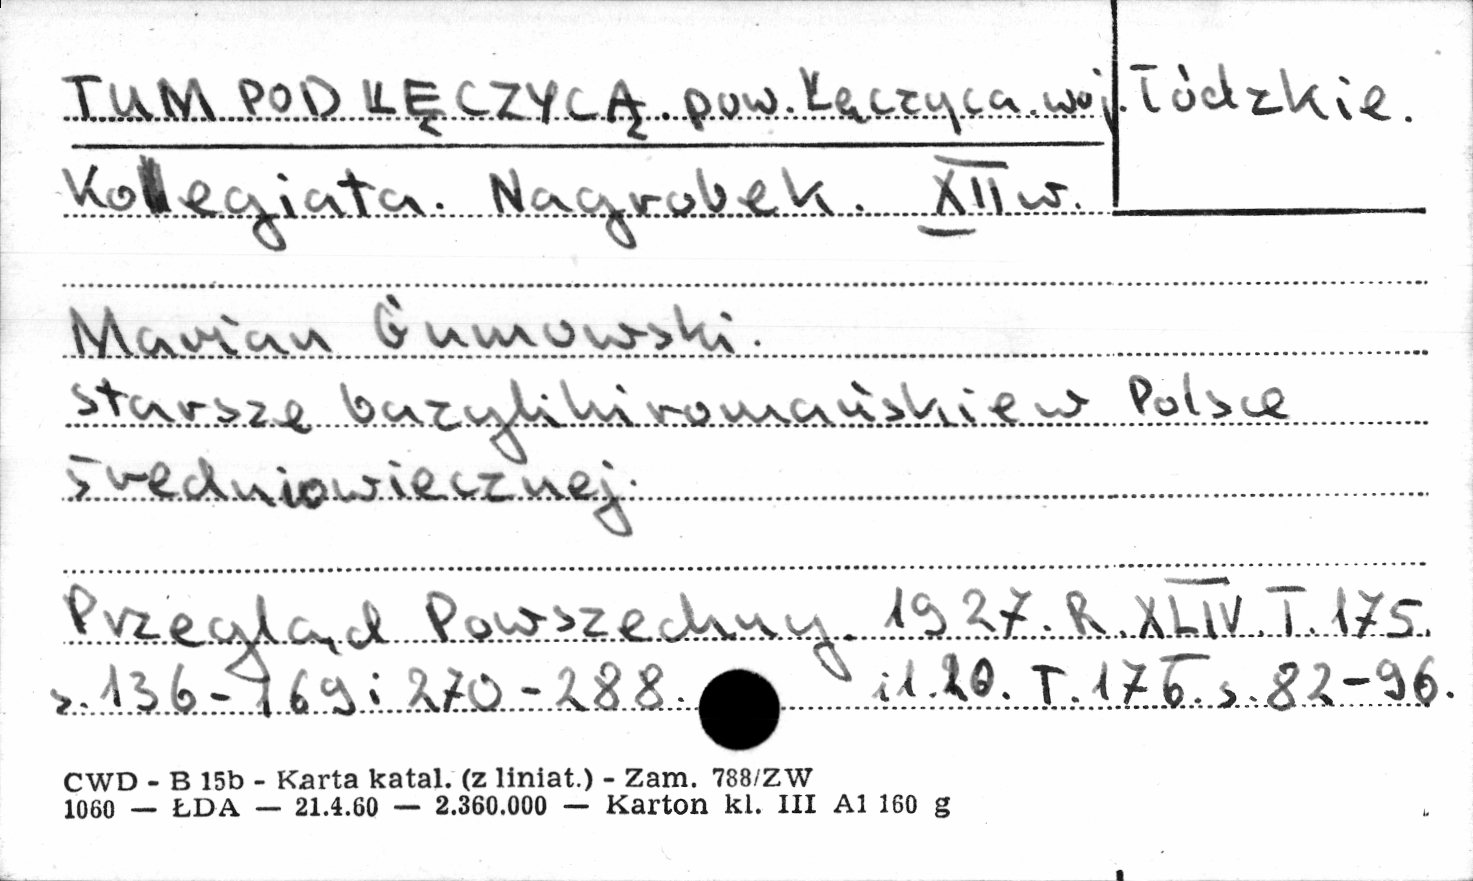 TUM POD ŁĘCZYCĄ. pow. Łęczyca. woj. Łódzkie.
Kollegiata. Nagrobek. XII w.
Marian Gumowski.
starsze bazyliki romańskie w Polsce
średniowiecznej.
Przegląd Powszechny. 1927. R. XLIV T. 175.
s. 136-169 i 270-288. il. 20. T. 176. s. 82-96.
CWD - B 15b - Karta katal. (z liniat.) - Zam. 788/ZW
1060 — ŁDA — 21.4.60 — 2.360.000 — Karton kl. III A1 160 g